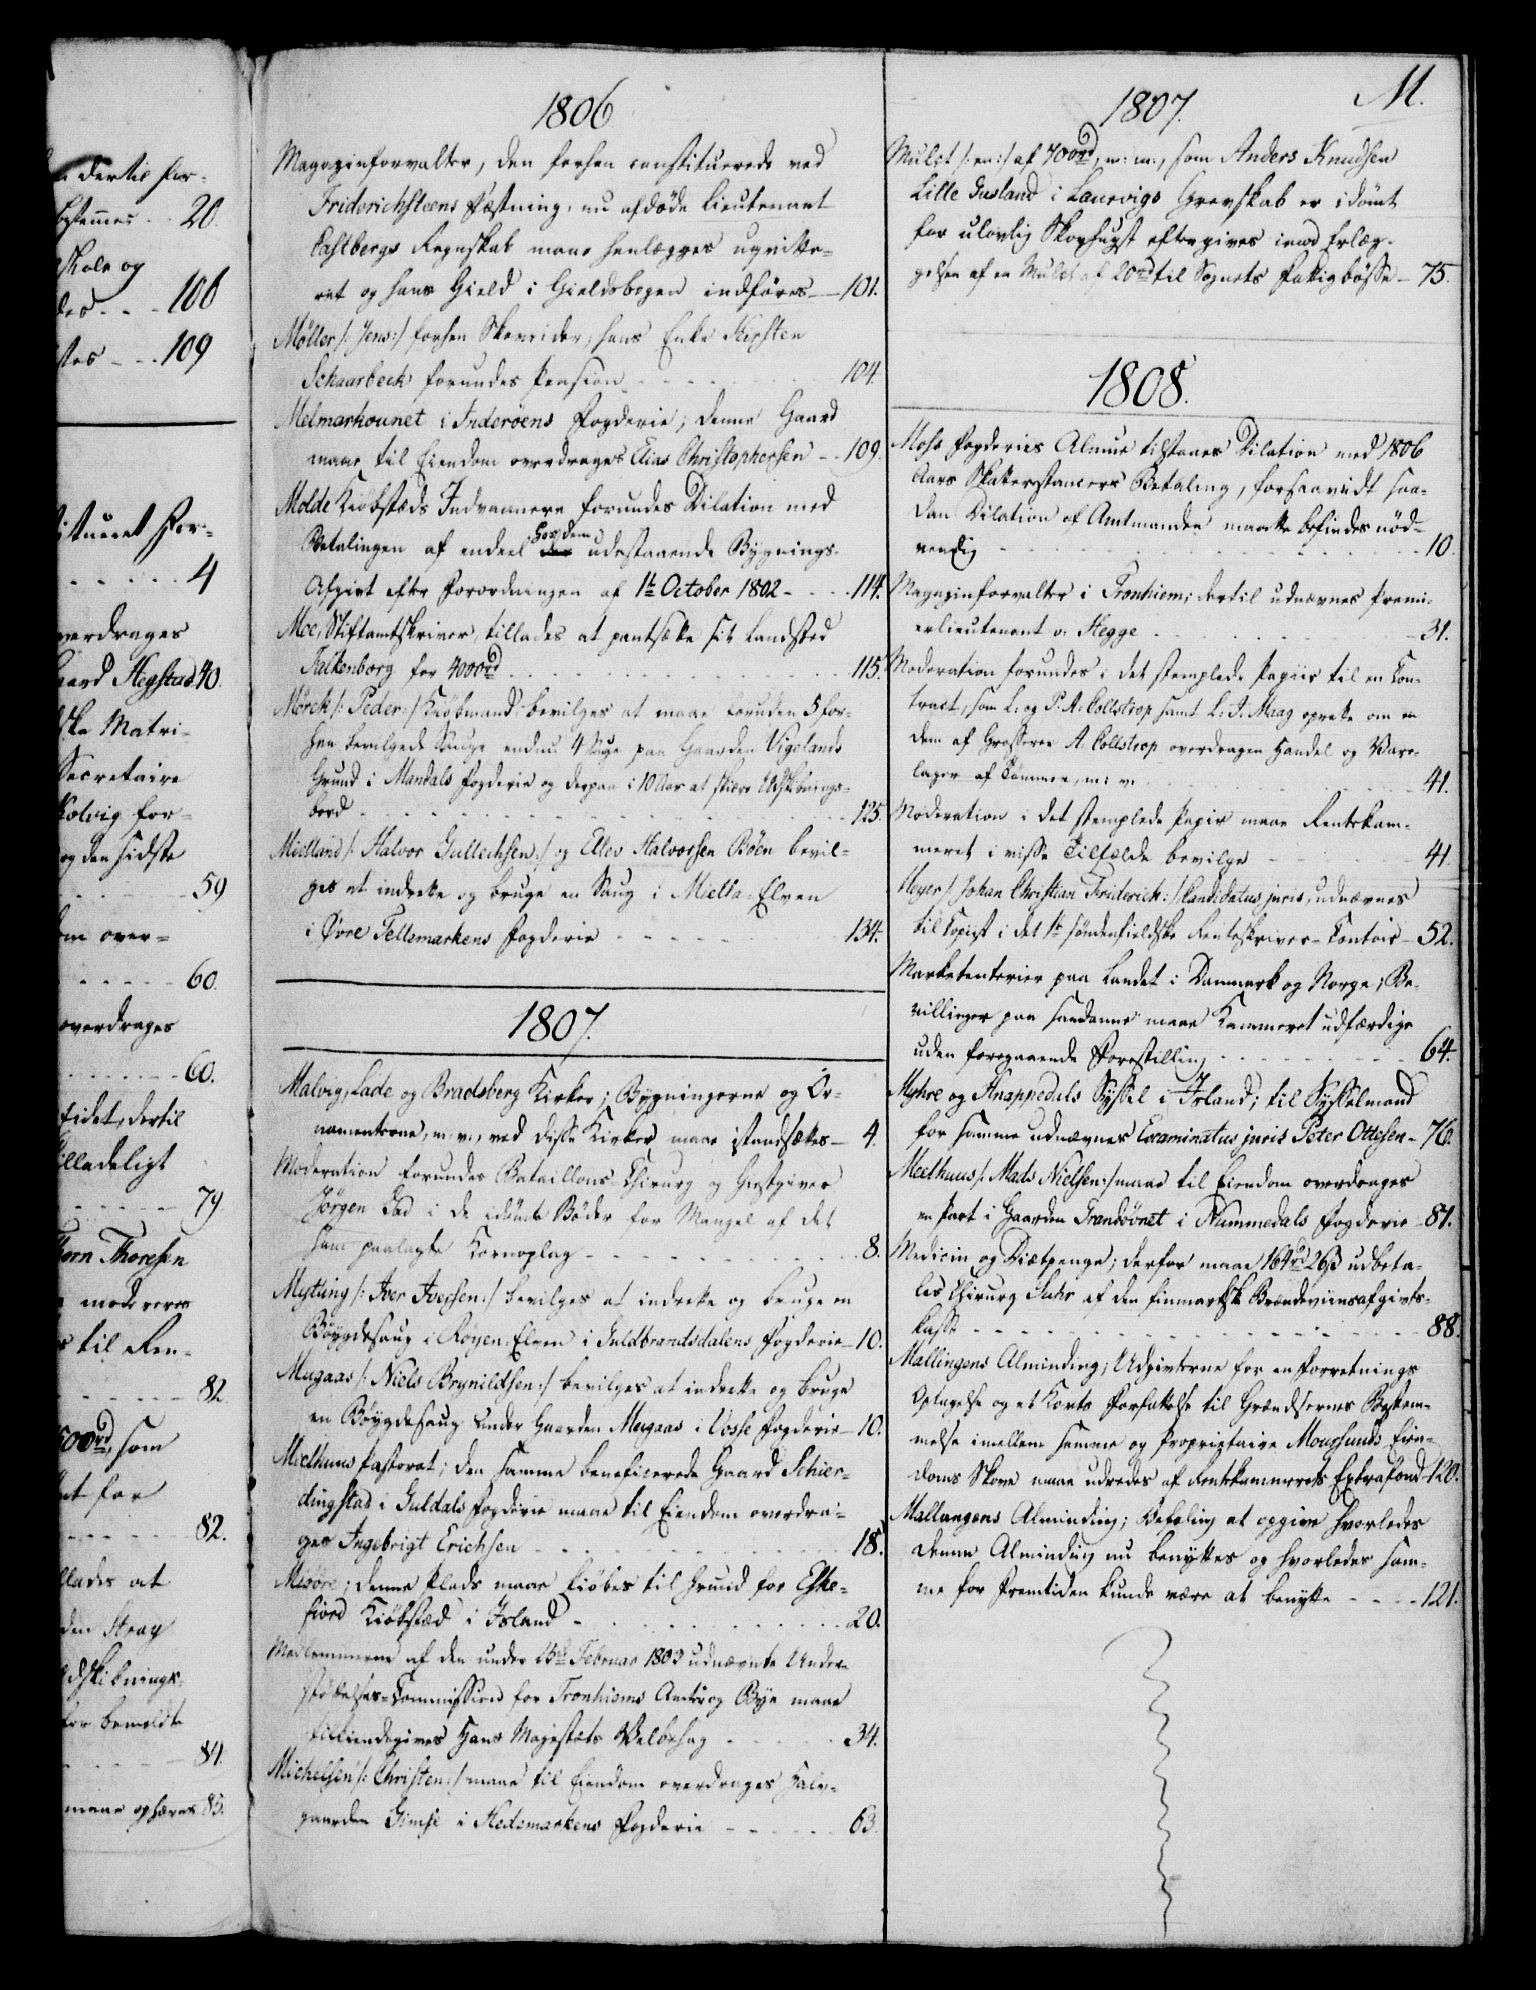 dertil for-
bestemmes - 20.
Skole og
des - - - 108
stes - - - 109
itueret For-
- - - - - 4
overdrages
aard Hegstad 40.
ske Matri-
Secretaire
Kolvig for-
og den sidste
- - - - - 59
om over-
- - - - - 60.
overdrages
- - - - - 60.
Eidet, dertil
illadeligt
- - - - - 79
Thorn Thoresen
moderere
til Ren-
- - - - - 82
500rd, som
et for
- - - - - 82.
llades at
den Aray
dskibnings-
for bemeldte
- - - - - 84.
maae ophæves 85.
1806
Magazinforvalter, den forhen constituerede ved
Friderichsteens Fæstning, nu afdøde Lieutenant
Dahlbergs Regnskab maae henlægges uqvitte-
ret og hans Gield i Gieldsbogen indføres - 101.
Møller /: Jens:/ forhen Skovrider; hans Enke Kirsten
Schaarbeck forundes Pension - - - - - 104.
Melmarkounet i Inderøens Fogderie; denne Gaard
maae til Eiendom overdrages Elias Christophersen - 109.
Molde Kiøbstæds Indvaanere forundes Dilation med
Betalingen af endeel hos dem udestaaende Bygnings-
Afgivt efter Forordningen af 1te October 1802 - - - 114.
Moe, Stiftamtskriver, tillades at pantsætte sit Landsted
Falkenborg for 4000rd - - - - - 115.
Mørck /: Peder:/ Kiøbmand bevilges at maae foruden 5 for-
hen bevilgede Sauge endnu 4 Sauge paa Gaarden Vigelands
Grund i Mandals Fogderie og derpaa i 10 Aar at skiære Udskibnings-
bord - - - - - 125.
Mielland /: Halvor Gullechsen:/ og Ellev Halvorsen Bøen bevil-
ges at indrette og bruge en Saug i Miella-Elven
i Øvre Tellemarkens Fogderie - - - - - 134.
1807.
Malvig, Lade og Bradsberg Kirker; Bygningerne og Or-
namenterne, m: v:, ved disse Kirker maae istandsættes - 4.
Moderation forundes Bataillons-Chirurg og Giestgiver
Jørgen Lad i de idømte Bøder for Mangel af det
ham paalagte Kornoplag - - - - - 8.
Mytting /: Iver Iversen:/ bevilges at indrette og bruge en
Bøygdesaug i Røyen-Elven i Guldbrandsdalens Fogderie - 10.
Mugaas /: Niels Brynildsen:/ bevilges at indrette og bruge
en Bøygdesaug under Gaarden Mugaas i Vosse Fogderie - 10.
Mielhuus Pastorat; den samme beneficerede Gaard Schier-
dingstad i Guldals Fogderie maae til Eiendom overdra-
ges Ingebrigt Erichsen - - - - - 18.
Miøøre; denne Plads maae kiøbes til Grund for Eske-
fiord Kiøbstæd i Island - - - - - 20.
Medlemmerne af den under 15de Februar 1803 udnævnte Under-
søgelses-Commission for Tronhiems Amt og Bye maae
tilkiendegives Hans Majestæts Velbehag - - - - - 34.
Michelsen /: Christen:/ maae til Eiendom overdrages Halv-
gaarden Gimse i Hedemarkens Fogderie - - - - - 63.
M.
1807.
Mulct /: en:/ af 700rd, m: m:, som Anders Knudsen
Lille Gusland i Laurvigs Grevskab er idømt
for ulovlig Skovhugst eftergives imod Erlæg-
gelsen af en Mulct af 20rd til Sognets Fattigbøsse - 75.
1808.
Moss Fogderies Almue tilstaaes Dilation med 1806
Aars Skatterstancers Betaling, forsaavidt saa-
dan Dilation af Amtmanden maatte befindes nød-
vendig - - - - - 10.
Magazinforvalter i Tronhiem; dertil udnævnes Premi-
erlieutenant v. Hegge - - - - - 31.
Moderation forundes i det stemplede Papiir til en Con-
tract, som L: og P: A: Collstrop samt L: I: Maag oprette om en
dem af Grosserer A. Collstrop overdragen Handel og Vare-
lager af Tømmer, m: v: - - - - - 41.
Moderation i det stemplede Papir maae Rentekam-
meret i visse Tilfælde bevilge - - - - - 41.
Meyer /: Johan Christian Friderich:/ Candidatus juris, udnævnes
til Copist i det 1te søndenfieldske Renteskriver-Contoir - 52.
Marketenterier paa Landet i Danmark og Norge; Be-
villinger paa saadanne maae Kammeret udfærdige
uden foregaaende Forestilling - - - - - 64.
Myhre og Knappedals Syssel i Island; til Sysselmand
for samme udnævnes Examinatus juris Peter Ottesen - 76.
Meelhuus /: Mads Nielsen:/ maae til Eiendom overdrages
en Part i Gaarden Grandøonet i Nummedals Fogderie - 81.
Medicin og Diætpenge; derfor maae 164rd 26ß udbeta-
les Chirurg Suhr af den finmarkske Brændeviinsafgivts-
Kasse - - - - - 88.
Mallingens Alminding; Udgivterne for en Forretnings
Optagelse og et Korts Forfattelse til Grændsernes Bestem-
melse imellem samme og Proprietaire Moursunds Eien-
doms Skove maae udredes af Rentekammerets Extrafond - 120.
Mallangens Alminding; Befaling at opgive hvorledes
denne Alminding nu benyttes og hvorledes sam-
me for Fremtiden kunde være at benytte - - - - 121.